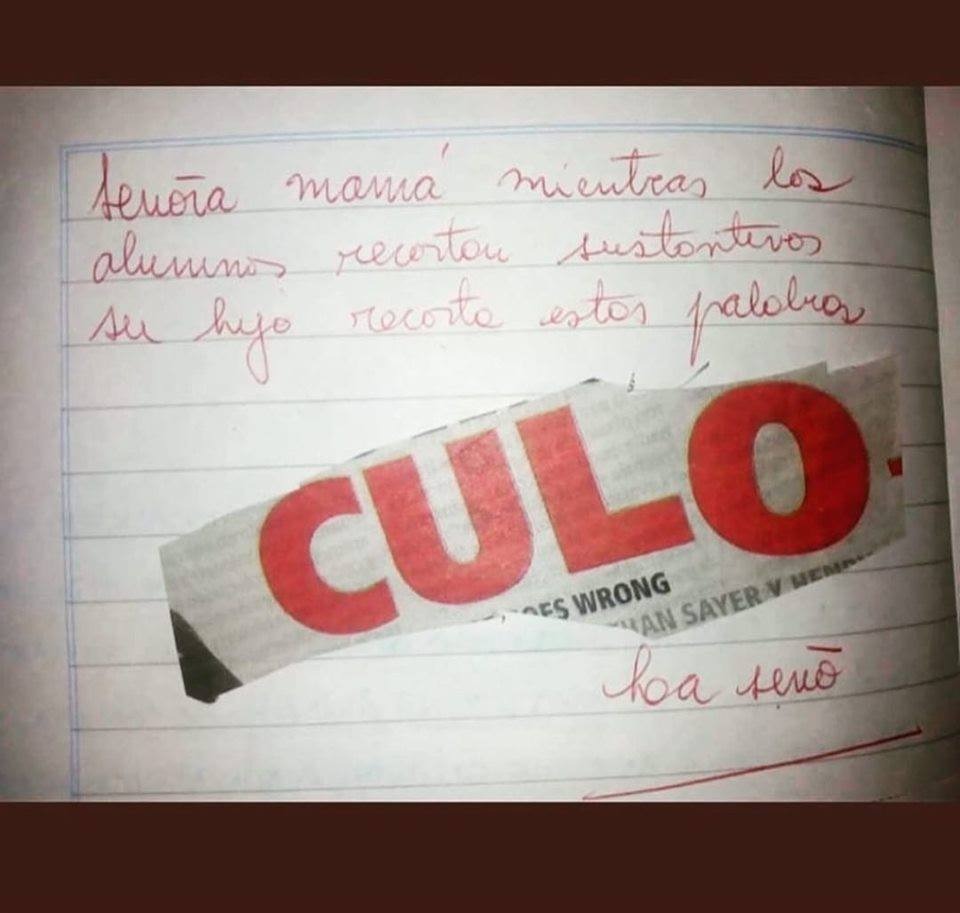 Señora mamá mientras los
alumnos recortan sustantivos
su hijo recorta estas palabras
CULO
OES WRONG
HAN SAYER Y HENR
La seño